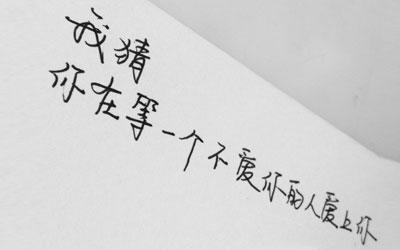 我猜
你在等一个不爱你的人爱上你